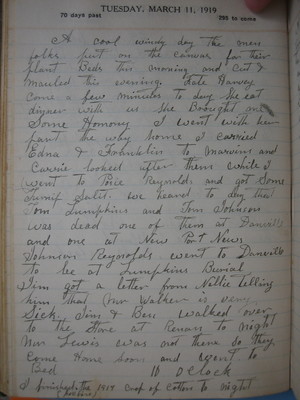 TUESDAY, MARCH 11, 1919
70 days past 295 to come
A cool windy day the men
folks put on the canvas for their
plant Beds this morning and Cut &
Mauled this evening. Kate Harvey
Come a few minutes to day She eat
dinner with us She Brought me
Some Homony I went with her
part the way home I carried
Edna & Franklin to Marvins and
Carrie looked after them while I
went to Price Reynolds and got Some
Turnip Salit. we heard to day that
Tom Lumpkins and Tom Johnson
was dead one of them at Danville
and one at New Port News
Johnson Reynolds went to Danville
to be at Lumpkins Burial
Jim got a letter from Nettie telling
him that Mr Walker is very
Sick. Jim & Ben walked over
to the Store at Renan to night
Mr Lewis was not there so they
Come Home soon and went to
Bed 10 o Clock
I finished the 1918 crop of Cotton to night